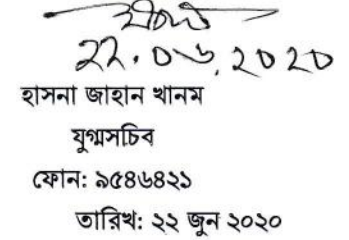 ২২.০৬.২০২০
হাসনা জাহান খানম
যুগ্মসচিব
ফোন: ৯৫৪৬৪২১
তারিখ: ২২ জুন ২০২০